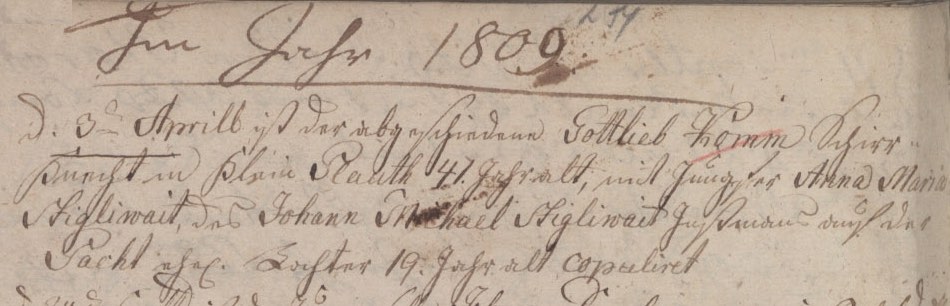 Im Jahr 1809.
d. 3ᵗ Aprill ist der abgeschiedene Gottlieb Komm Schirr-
knecht in Klein Rauth 41. Jahr alt, mit Jungfer Anna Maria
Stigliwait, des Johann Michael Stigliwait Instmans auf der
Pacht ehel. Tochter 19. Jahr alt copuliret